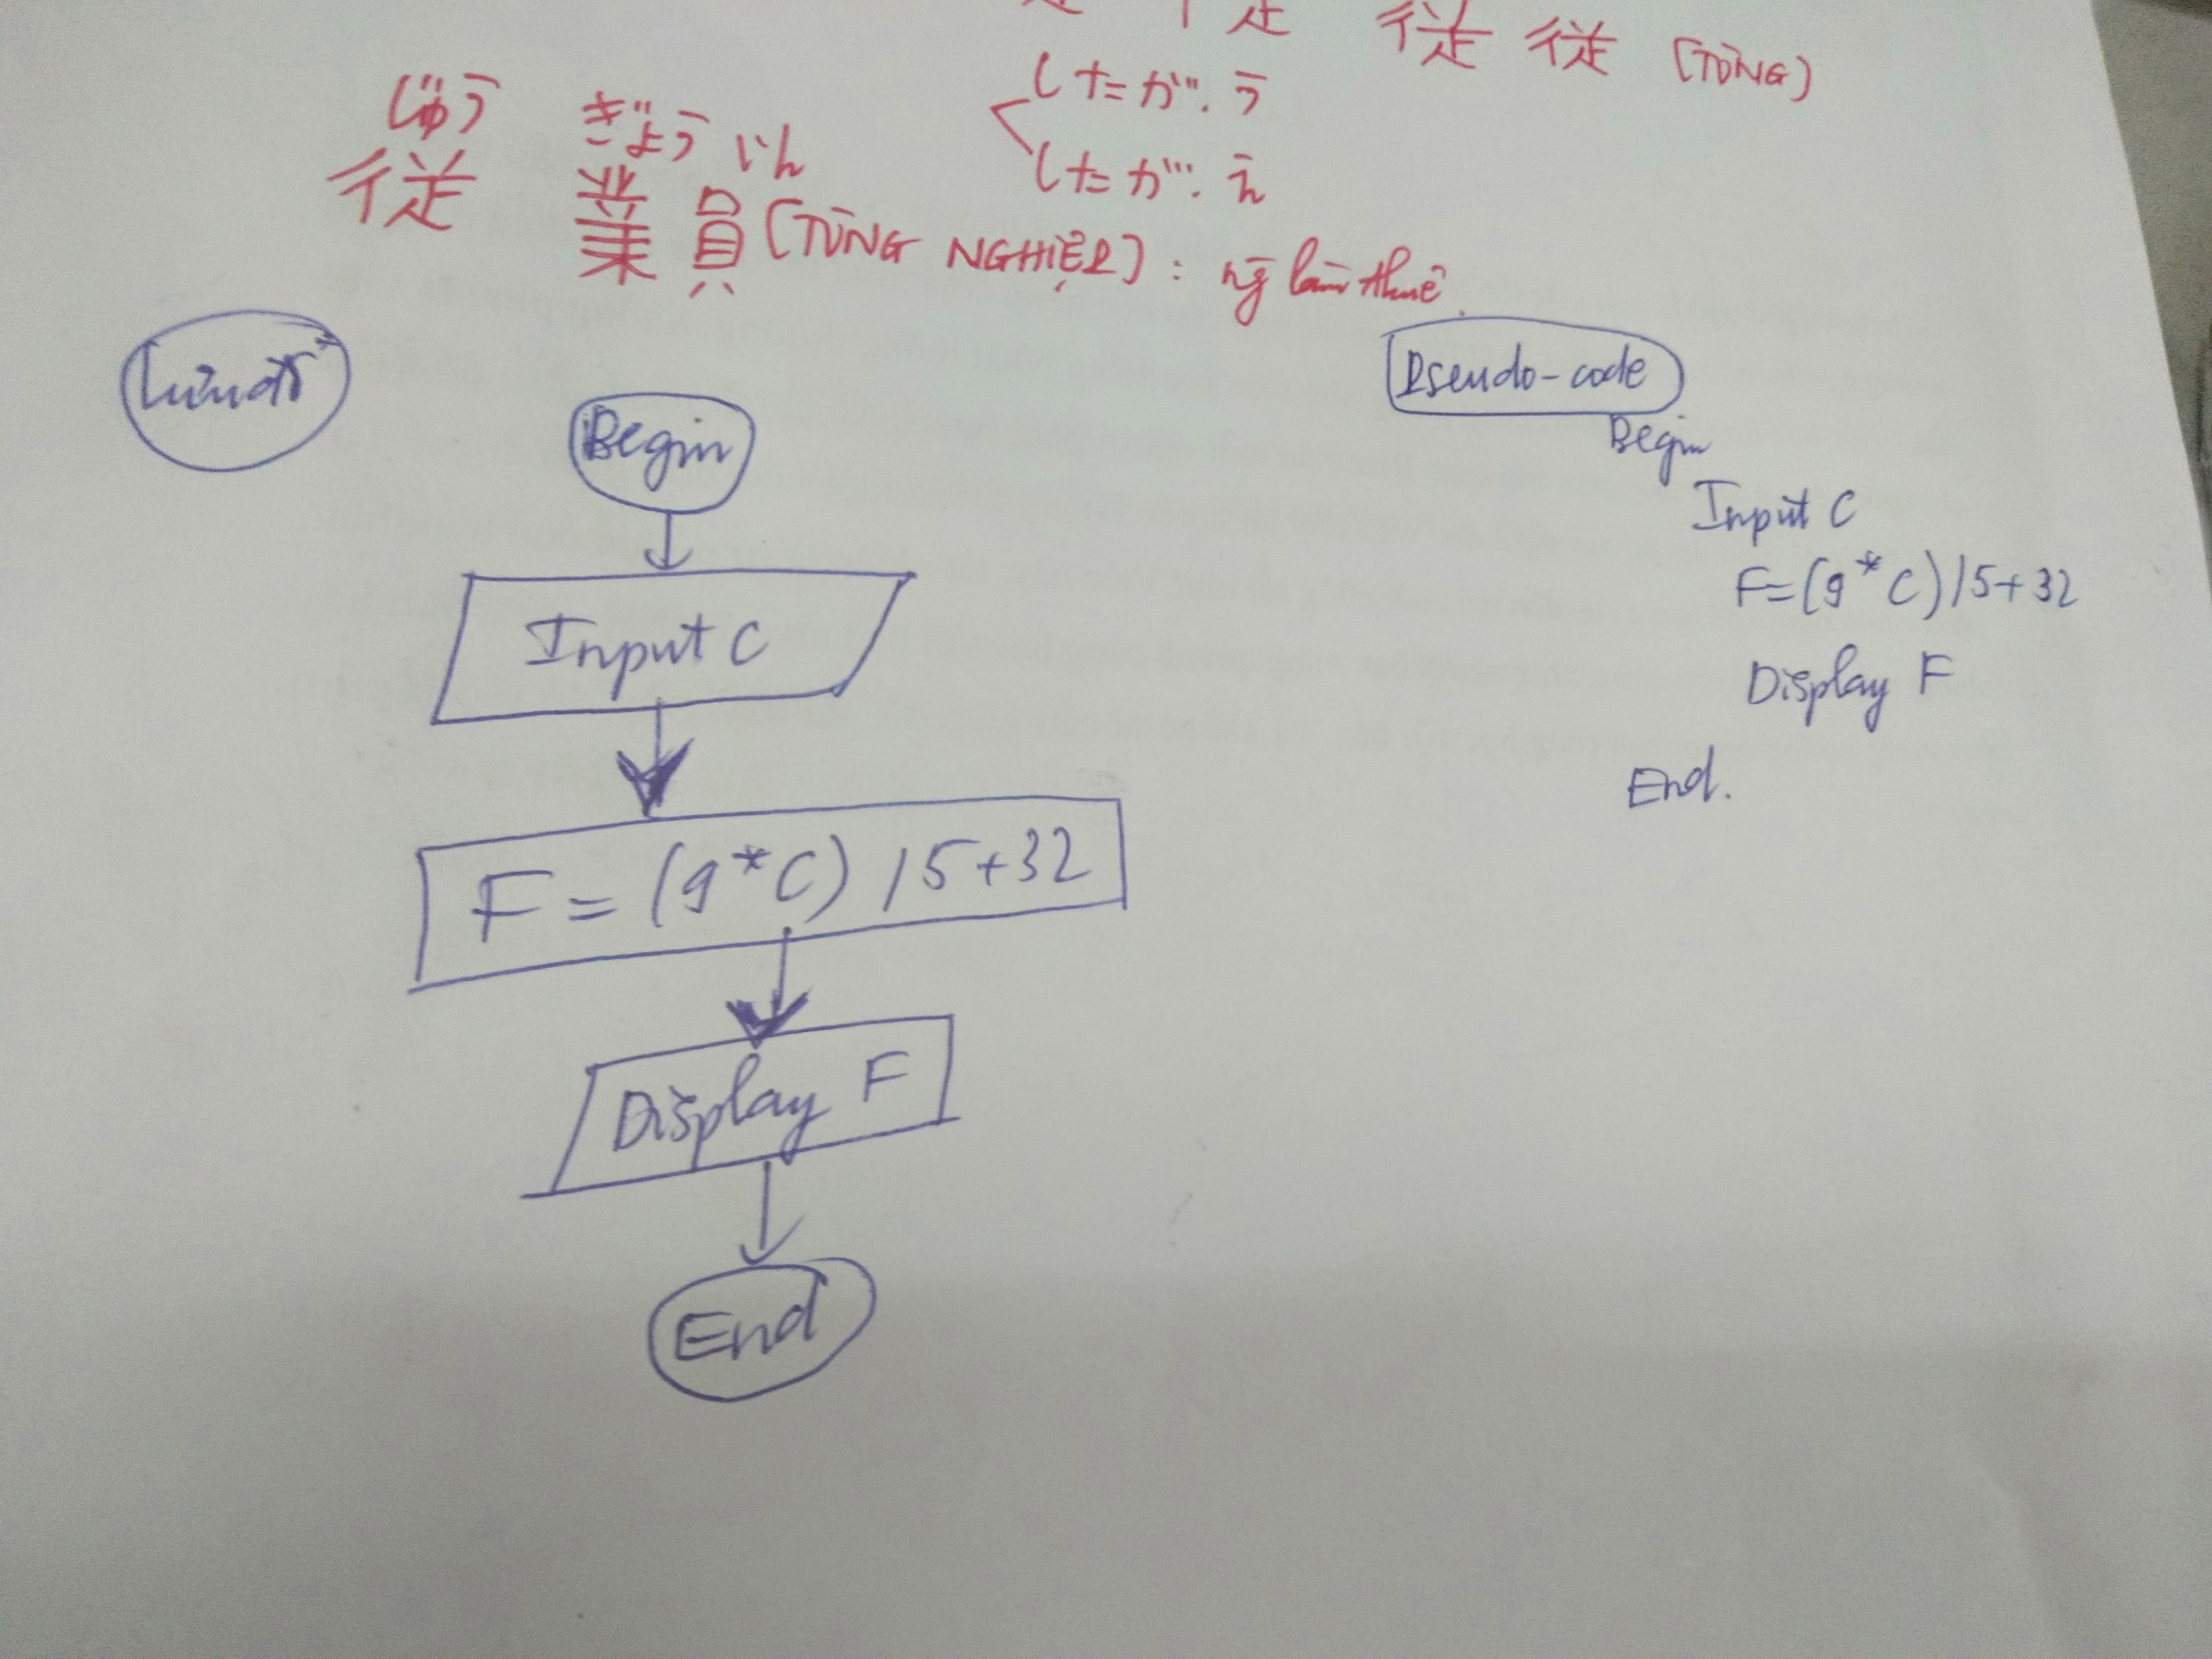 従 従 [TÙNG]
じゅう ぎょう いん
従業員 [TÙNG NGHIỆP] : ng̃ làm thuê.
したが.う
したが.え
Lưu đồ
Begin
Input C
F = (9*C) / 5 + 32
Display F
End
Pseudo-code
Begin
Input C
F = (9*C) / 5 + 32
Display F
End.